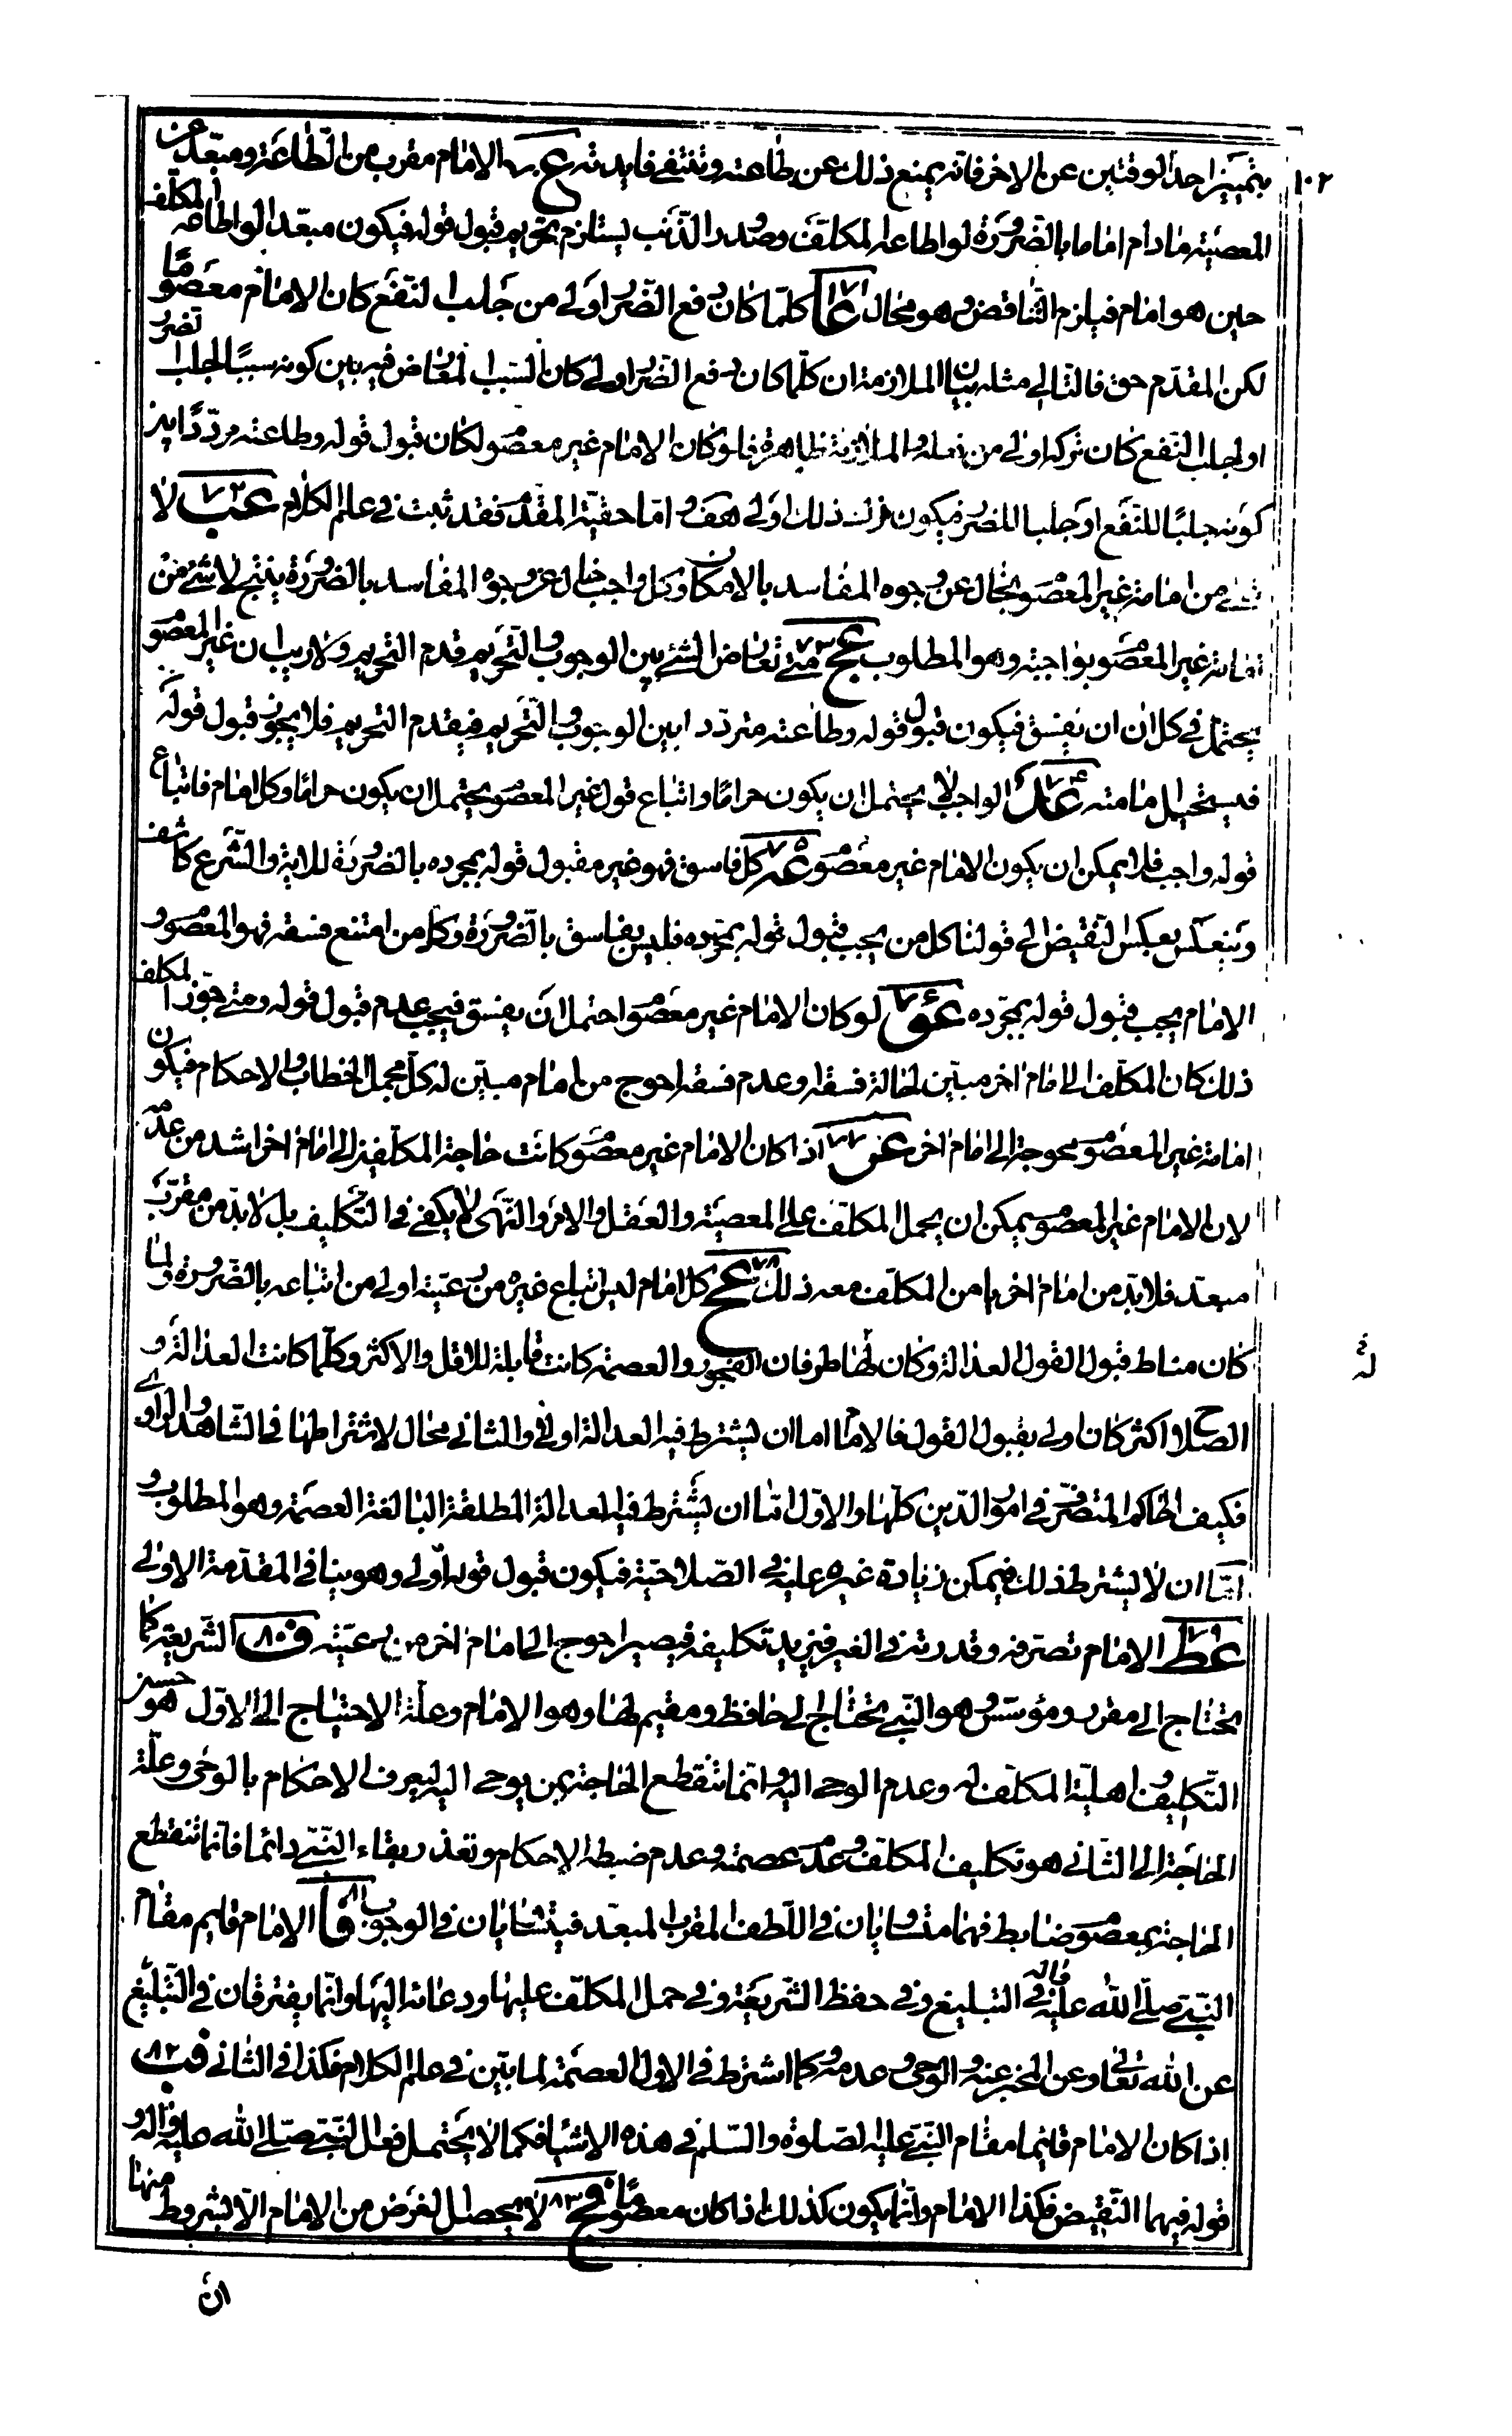 ١٠٢
بتمييز احد الوقتين عن الاخر فانه يمنع ذلك عن طاعته وتنتفى فايدته ع ٧٠ الامام مقرب من الطاعة ومبعد عن
المعصية مادام اماما بالضرورة لو اطاعه المكلف وصدور الذنب يستلزم تحريم قبول قوله فيكون مبعدا لو اطاعه المكلف
حين هو امام فيلزم التناقض وهو محال عا ٧١ كلما كان دفع الضرر اولى من جلب النفع كان الامام معصوما
لكن المقدم حق فالتالى مثله بيان الملازمة ان كلما كان دفع الضرر اولى كان السبب المعارض فيه بين كونه سببا لجلب ضرر
او لجلب النفع كان تركه اولى من فعله والملازمة ظاهرة فلو كان الامام غير معصوم لكان قبول قوله وطاعته مرددا بين
كونه جلبا للنفع او جلبا للضرر فيكون ترك ذلك اولى هف واما حقية المقدم فقد ثبت في علم الكلام عب ٧٢ لا
شئ من امامة غير المعصوم بخال عن وجوه المفاسد بالامكان وكل واجب خال عن وجوه المفاسد بالضرورة ينتج لا شئ من
امامة غير المعصوم بواجبة وهو المطلوب عج ٧٣ متى تعارض الشئ بين الوجوب والتحريم قدم التحريم ولا ريب ان غير المعصوم
يحتمل في كل ان ان يفسق فيكون قبول قوله وطاعته مترددا بين الوجوب والتحريم فيقدم التحريم فلا يجوز قبول قوله
فيستحيل امامته عد ٧٤ الواجب لا يحتمل ان يكون حراما واتباع قول غير المعصوم يحتمل ان يكون حراما وكل امام فاتباع
قوله واجب فلا يمكن ان يكون الامام غير معصوم عه ٧٥ كل فاسق فهو غير مقبول قوله بمجرده بالضرورة للاية والشرع كاشف
وينعكس بعكس النقيض الى قولنا كل من يجب قبول قوله بمجرده فليس بفاسق بالضرورة وكل من امتنع فسقه فهو المعصوم و
الامام يجب قبول قوله بمجرده عو ٧٦ لو كان الامام غير معصوم احتمل ان يفسق فيجب عدم قبول قوله ومتى جوز المكلف
ذلك كان المكلف الى امام اخر مبين لحالة فسقه وعدم فسقه احوج من امام مبين له كل مجمل الخطاب والاحكام فيكون
امامة غير المعصوم محوجة الى امام اخر عز ٧٧ اذا كان الامام غير معصوم كانت حاجة المكلفين الى امام اخر اشد من عدمه
لان الامام غير المعصوم يمكن ان يحمل المكلف على المعصية والعقل والامر والنهى لا يكفى في التكليف بل لا بد من مقرب
مبعد فلا بد من امام اخر يامن المكلف معه ذلك عح ٧٨ كل امام ليس اتباع غيره من رعيته اولى من اتباعه بالضرورة ولما
كان مناط قبول القول العدالة وكان لها طرفان الفجور والعصمة كانت قابلة للاقل والاكثر وكلما كانت العدالة و
الصلاح اكثر كان اولى بقبول القول فالامام اما ان يشترط فيه العدالة اولا والثانى محال لاشتراطها في الشاهد والراوى
فكيف الحاكم المتصرف في امور الدين كلها والاول اما ان يشترط فيه العدالة المطلقة البالغة العصمة وهو المطلوب و
اما ان لا يشترط ذلك فيمكن زيادة غيره عليه في الصلاحية فيكون قبول قوله اولى وهو ينافى المقدمة الاولى
عط ٧٩ الامام تصرفه وقدرته في الغير فيزيد تكليفه فيصير احوج الى امام اخر من رعيته ف ٨٠ الشريعة كما
تحتاج الى مقرب ومؤسس هو النبى تحتاج الى حافظ ومقيم لها وهو الامام وعلة الاحتياج الى الاول هو حسن
التكليف واهلية المكلف له وعدم الوحى اليه وانما تنقطع الحاجة بمن يوحى اليه ليعرف الاحكام بالوحى وعلة
الحاجة الى الثانى هو تكليف المكلف وعدم عصمته وعدم ضبطه الاحكام وتعذر بقاء النبى دائما فانما تنقطع
الحاجة بمعصوم ضابط فهما متساويان في اللطف المقرب المبعد فيتساويان في الوجوب فا ٨١ الامام قايم مقام
النبى صلى الله عليه واله في التبليغ وفي حفظ الشريعة وفي حمل المكلف عليها ودعائه اليها وانما يفترقان في التبليغ
عن الله تعالى وعن المخبر عنه والوحى وعدمه وكما اشترط في الاول العصمة لما بين في علم الكلام فكذا في الثانى فب ٨٢
اذا كان الامام قايما مقام النبى عليه الصلوة والسلم في هذه الاشياء فكما لا يحتمل فعل النبى صلى الله عليه واله و
قوله فيهما النقيض فكذا الامام وانما يكون كذلك اذا كان معصوما فج ٨٣ لا يحصل الغرض من الامام الا بشروط منها
ان